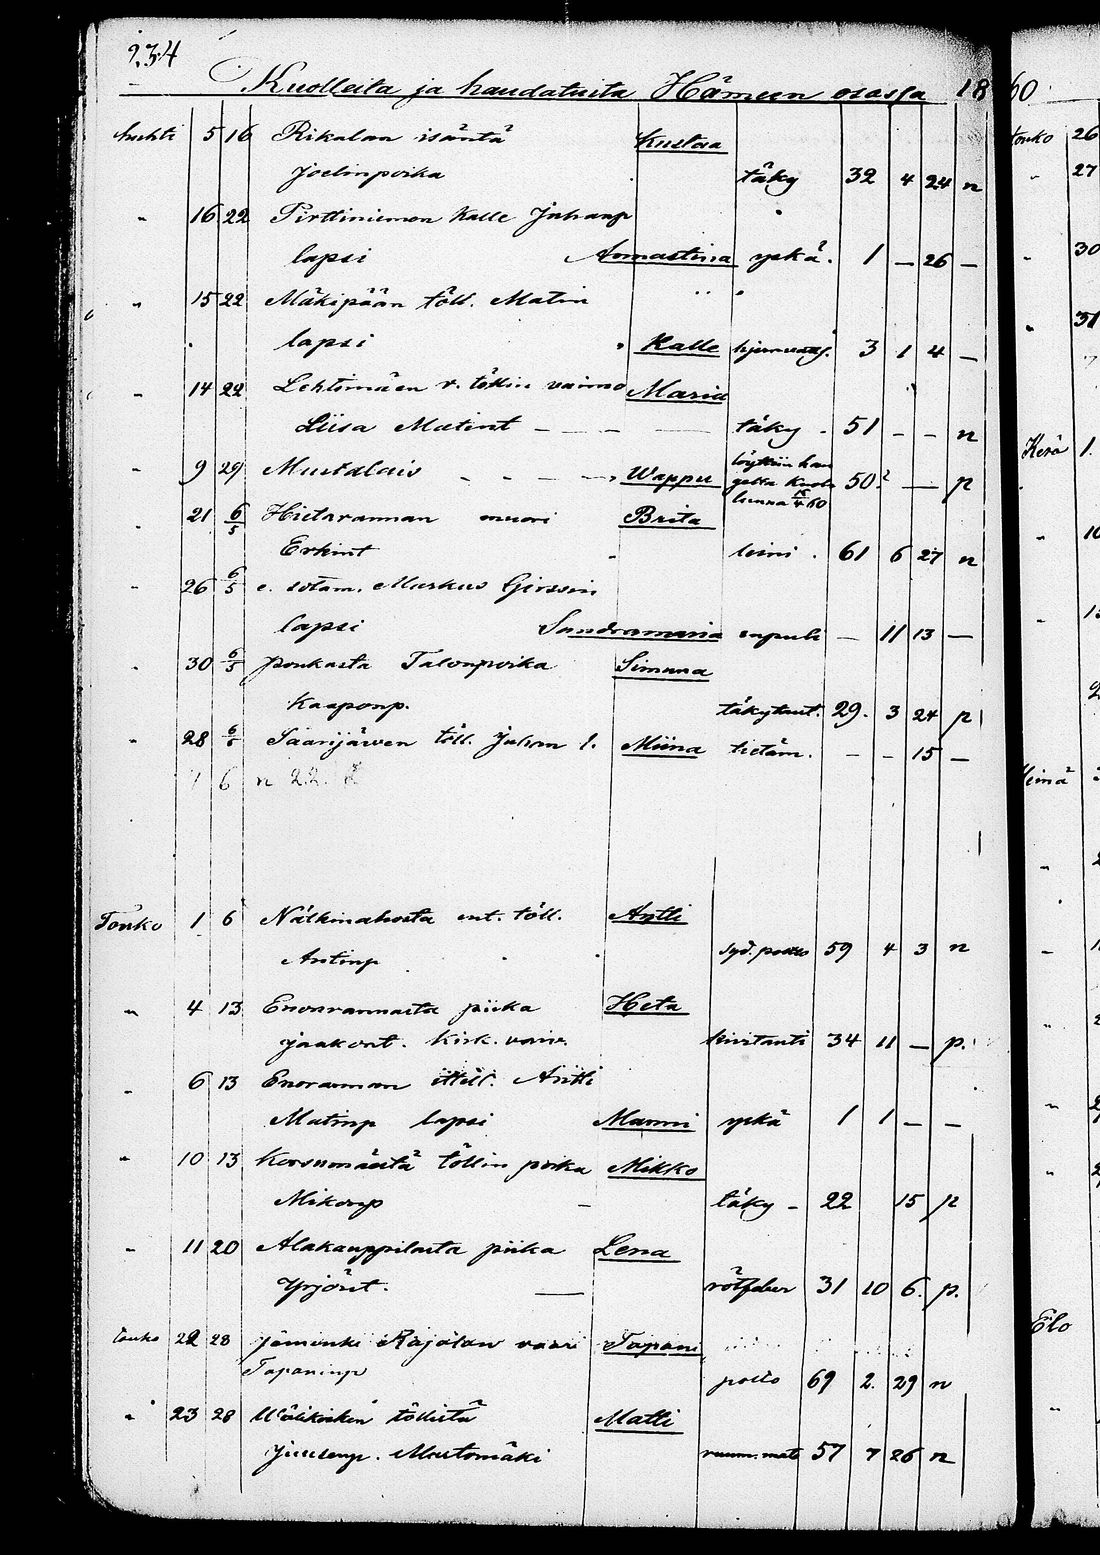 234
Kuolleita ja haudatuita Hämeen osassa 1860
huhti 5 16 Rikalan isäntä Kustaa
Joelinpoika täky 32 4 24 n
" 16 22 Pirttiniemen Kalle Juhanp
lapsi Annastina yskä. 1 — 26 —
" 15 22 Mäkipään töll. Matin
lapsi Kalle 3 1 4 —
" 14 22 Lehtimäen v. töllin vaimo Maria
Liisa Matint — — — täky - 51 - - n
" 9 29 Mustalais - - - Wappu löyttiin han
50? — p
21 6/5 Hietarannan muori Brita
Erkint leini . 61 6 27 n
" 26 6/5 e. sotam. Markus Girssin
lapsi Sandramaria — 11 13 —
" 30 6/5 Poukasta Talonpoika Simuna
Kaaponp. täkytaut. 29. 3 24 p
" 28 6/5 Saarijärven töll. Juhan l. Miina tietäm. - - 15 —
7 6 n 22.
Touko 1 6 Nälkinahosta ent. töll. Antti
Antinp 59 4 3 n
" 4 13 Enorannasta piika Heta
Jaakont. kirk. vaiv. kivitauti 34 11 — p.
" 6 13 Enorannan ittell. Antti
Matinp lapsi Manni yskä 1 1 — —
" 10 13 töllin poika Mikko
Mikonp — täky - 22 15 p
" 11 20 Alakauppilasta piika Lena
Yrjönt. — rötfeber 31 10 6. p.
touko 22 28 Rajalan vaari Tapani
Tapaninp polto 69 2. 29 n
" 23 28 töllistä Matti
Juusenp. Mustomäki 57 7 26 n
touko 26
" 27
" 30
" 31
Kesä 1.
Heinä
Elo